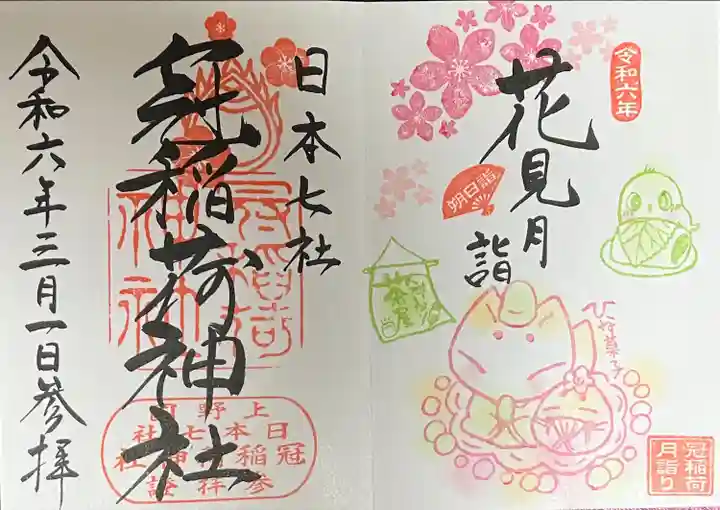 令和六年
花見月
詣
朔日詣
茶屋
菓子
冠稲荷
月詣り
日本七社
冠稲荷神社
冠稲荷
神社
上野国
日本七社
冠稲荷神社
参拝證
令和六年三月一日参拝